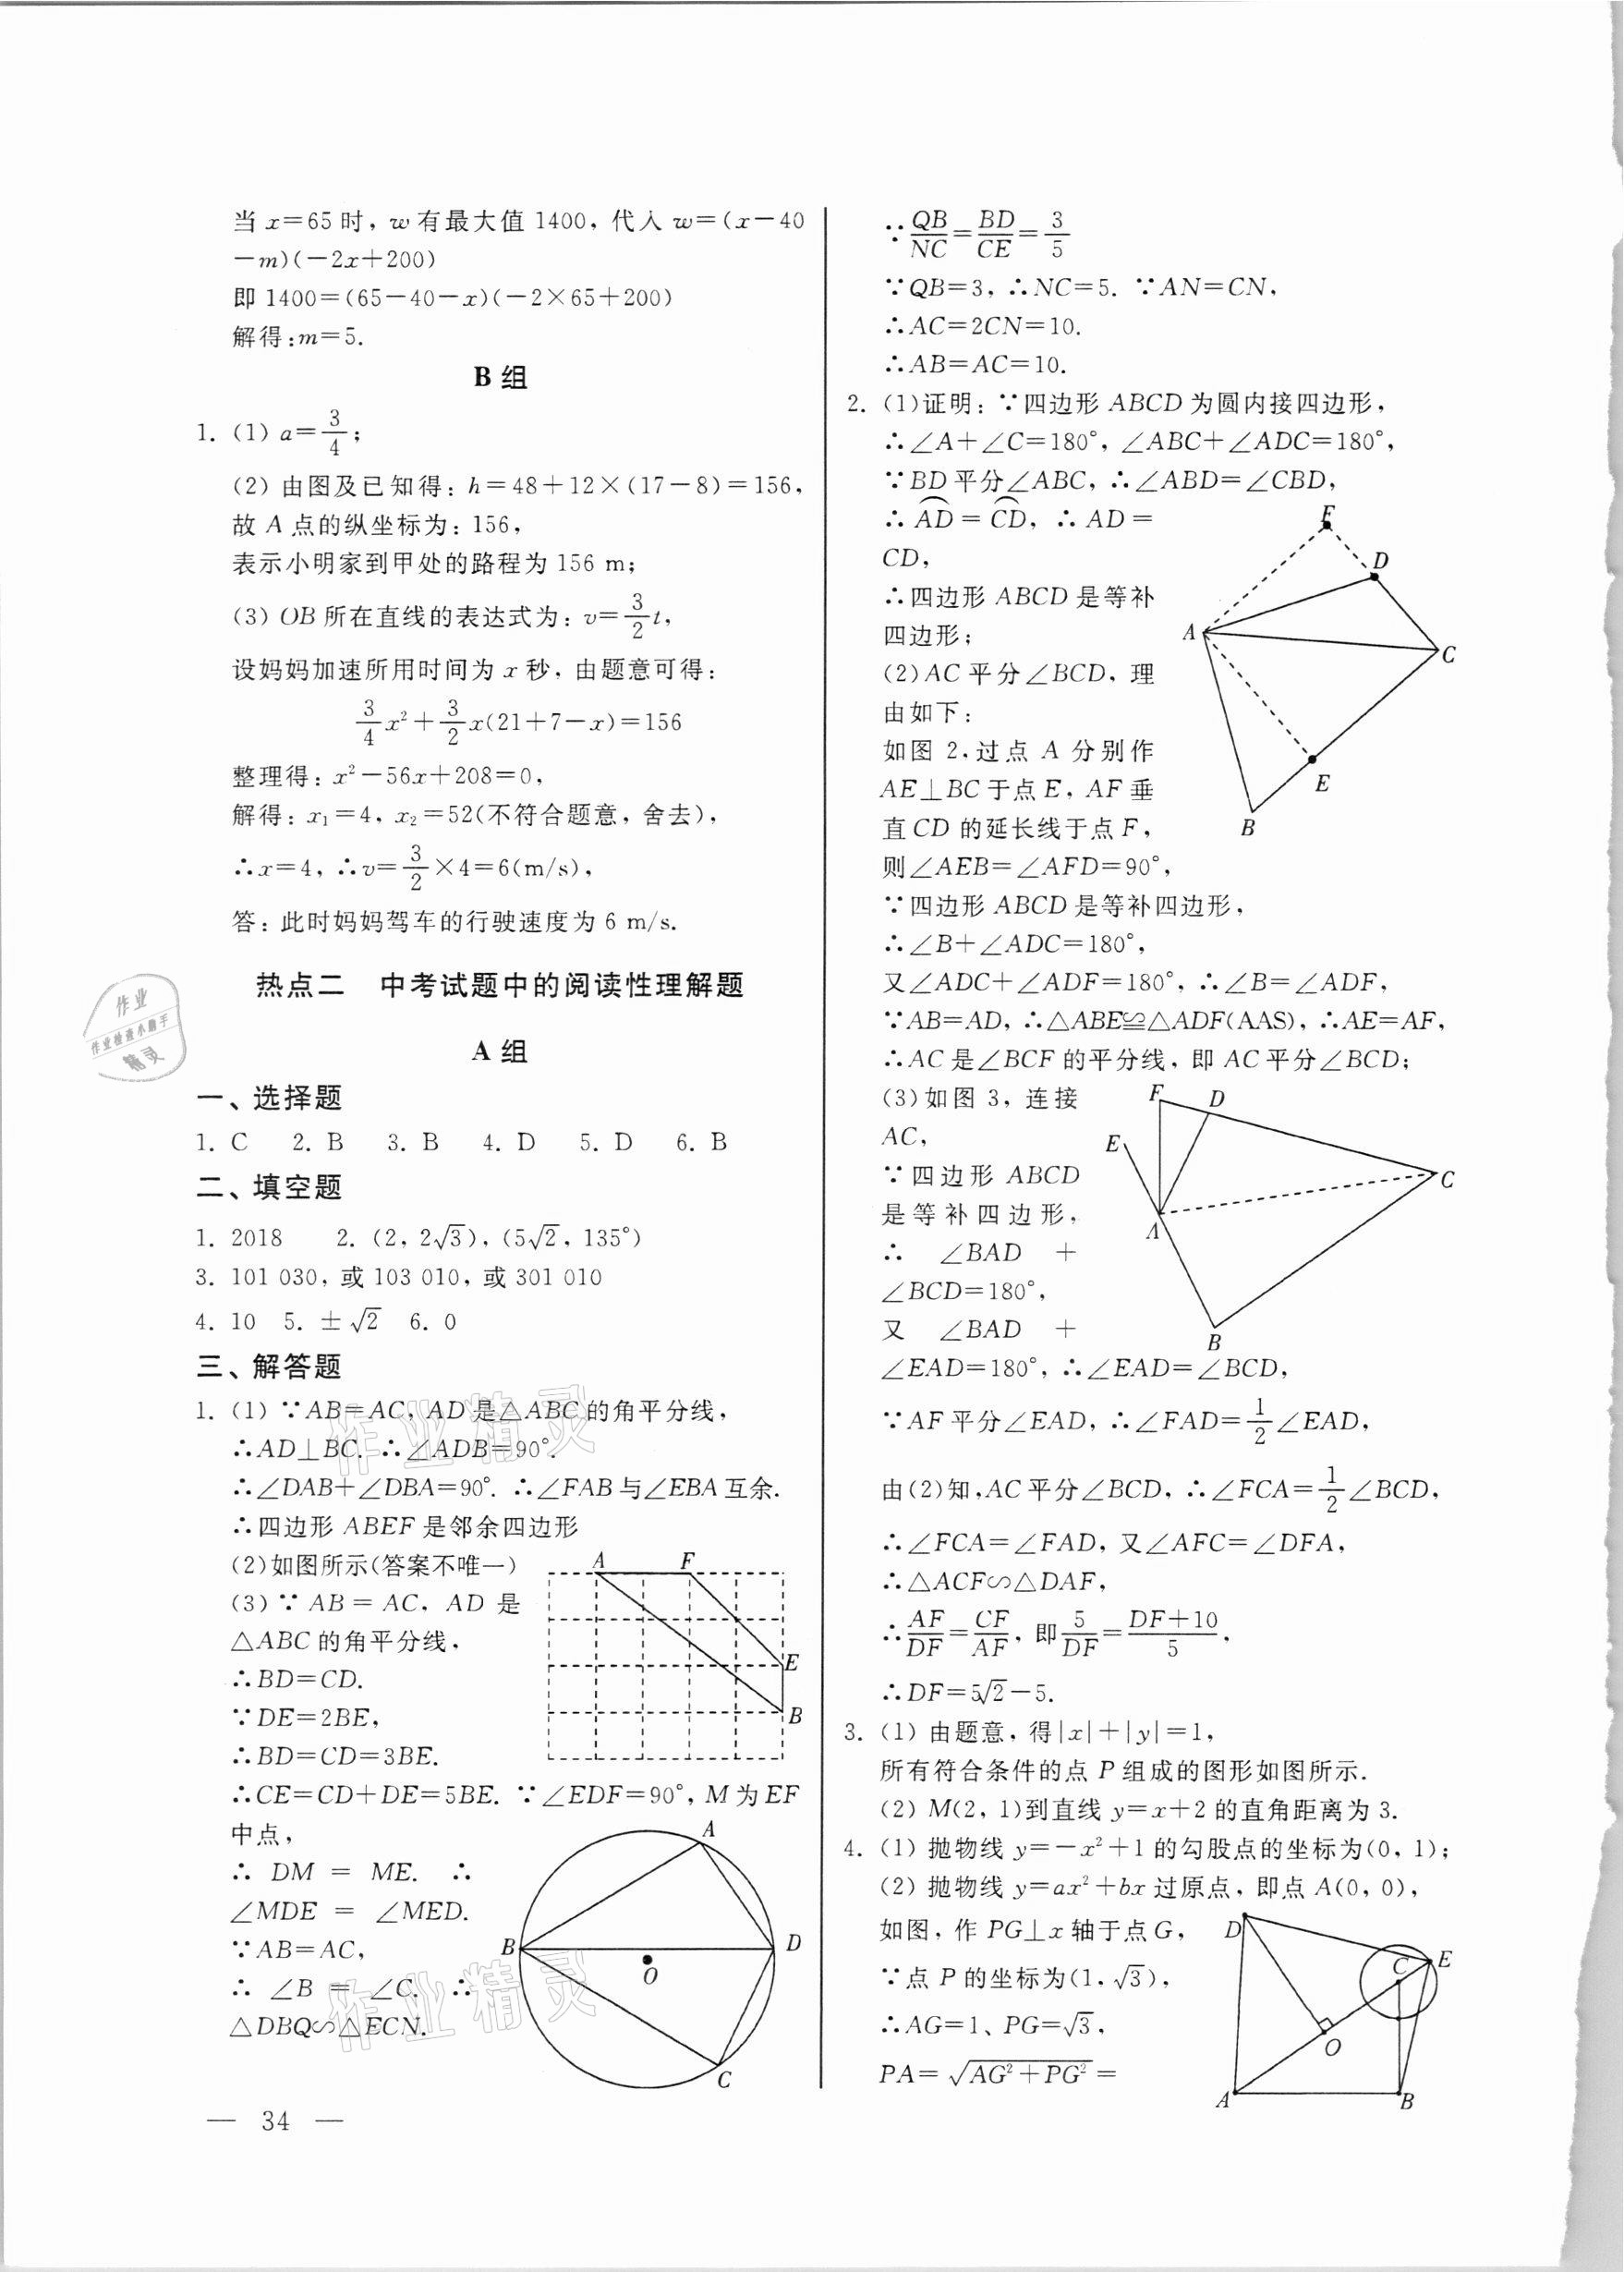 当 x=65 时，w 有最大值 1400，代入 w=(x-40
-m)(-2x+200)
即 1400=(65-40-x)(-2×65+200)
解得:m=5.
B 组
1. (1) a=3/4；
(2) 由图及已知得：h=48+12×(17-8)=156，
故 A 点的纵坐标为：156，
表示小明家到甲处的路程为 156 m；
(3) OB 所在直线的表达式为：v=3/2t，
设妈妈加速所用时间为 x 秒，由题意可得：
3/4x²+3/2x(21+7-x)=156
整理得：x²-56x+208=0，
解得：x₁=4，x₂=52(不符合题意，舍去)，
∴x=4，∴v=3/2×4=6(m/s)，
答：此时妈妈驾车的行驶速度为 6 m/s.
热点二 中考试题中的阅读性理解题
A 组
一、选择题
1. C 2. B 3. B 4. D 5. D 6. B
二、填空题
1. 2018 2. (2，2√3)，(5√2，135°)
3. 101 030，或 103 010，或 301 010
4. 10 5. ±√2 6. 0
三、解答题
1. (1) ∵AB=AC，AD 是△ABC 的角平分线，
∴AD⊥BC. ∴∠ADB=90°.
∴∠DAB+∠DBA=90°. ∴∠FAB 与∠EBA 互余.
∴四边形 ABEF 是邻余四边形
(2)如图所示(答案不唯一)
(3)∵ AB = AC，AD 是
△ABC 的角平分线，
∴BD=CD.
∵DE=2BE，
∴BD=CD=3BE.
∴CE=CD+DE=5BE. ∵∠EDF=90°，M 为 EF
中点，
∴ DM = ME. ∴
∠MDE = ∠MED.
∵AB=AC，
∴ ∠B = ∠C. ∴
△DBQ∽△ECN.
A F
E
B
A
B D
O
C
— 34 —
∵QB/NC=BD/CE=3/5
∵QB=3，∴NC=5. ∵AN=CN，
∴AC=2CN=10.
∴AB=AC=10.
2. (1)证明：∵四边形 ABCD 为圆内接四边形，
∴∠A+∠C=180°，∠ABC+∠ADC=180°，
∵BD 平分∠ABC，∴∠ABD=∠CBD，
∴ A͡D = C͡D，∴ AD =
CD，
∴四边形 ABCD 是等补
四边形；
(2)AC 平分∠BCD，理
由如下：
如图 2，过点 A 分别作
AE⊥BC 于点 E，AF 垂
直 CD 的延长线于点 F，
则∠AEB=∠AFD=90°，
∵四边形 ABCD 是等补四边形，
∴∠B+∠ADC=180°，
又∠ADC+∠ADF=180°，∴∠B=∠ADF，
∵AB=AD，∴△ABE≌△ADF(AAS)，∴AE=AF，
∴AC 是∠BCF 的平分线，即 AC 平分∠BCD；
(3)如图 3，连接
AC，
∵四边形 ABCD
是等补四边形，
∴ ∠BAD +
∠BCD=180°，
又 ∠BAD +
∠EAD=180°，∴∠EAD=∠BCD，
∵AF 平分∠EAD，∴∠FAD=1/2∠EAD，
由(2)知，AC 平分∠BCD，∴∠FCA=1/2∠BCD，
∴∠FCA=∠FAD，又∠AFC=∠DFA，
∴△ACF∽△DAF，
∴AF/DF=CF/AF，即5/DF=(DF+10)/5，
∴DF=5√2-5.
3. (1) 由题意，得|x|+|y|=1，
所有符合条件的点 P 组成的图形如图所示.
(2) M(2，1)到直线 y=x+2 的直角距离为 3.
4. (1) 抛物线 y=-x²+1 的勾股点的坐标为(0，1)；
(2) 抛物线 y=ax²+bx 过原点，即点 A(0，0)，
如图，作 PG⊥x 轴于点 G，
∵点 P 的坐标为(1，√3)，
∴AG=1、PG=√3，
PA=√(AG²+PG²) =
F
D
A
C
E
B
F D
E
C
A
B
D
C E
O
A B
作业
作业检查小助手
精灵
作业精灵
作业精灵